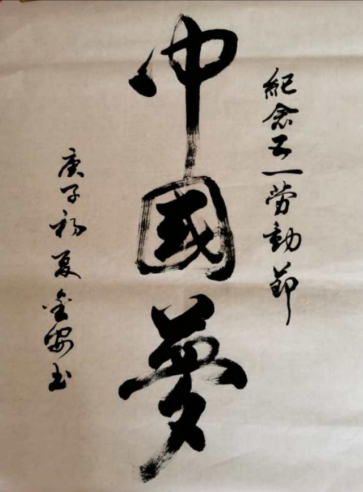 紀念五一勞動節
中國夢
庚子初夏金安玉